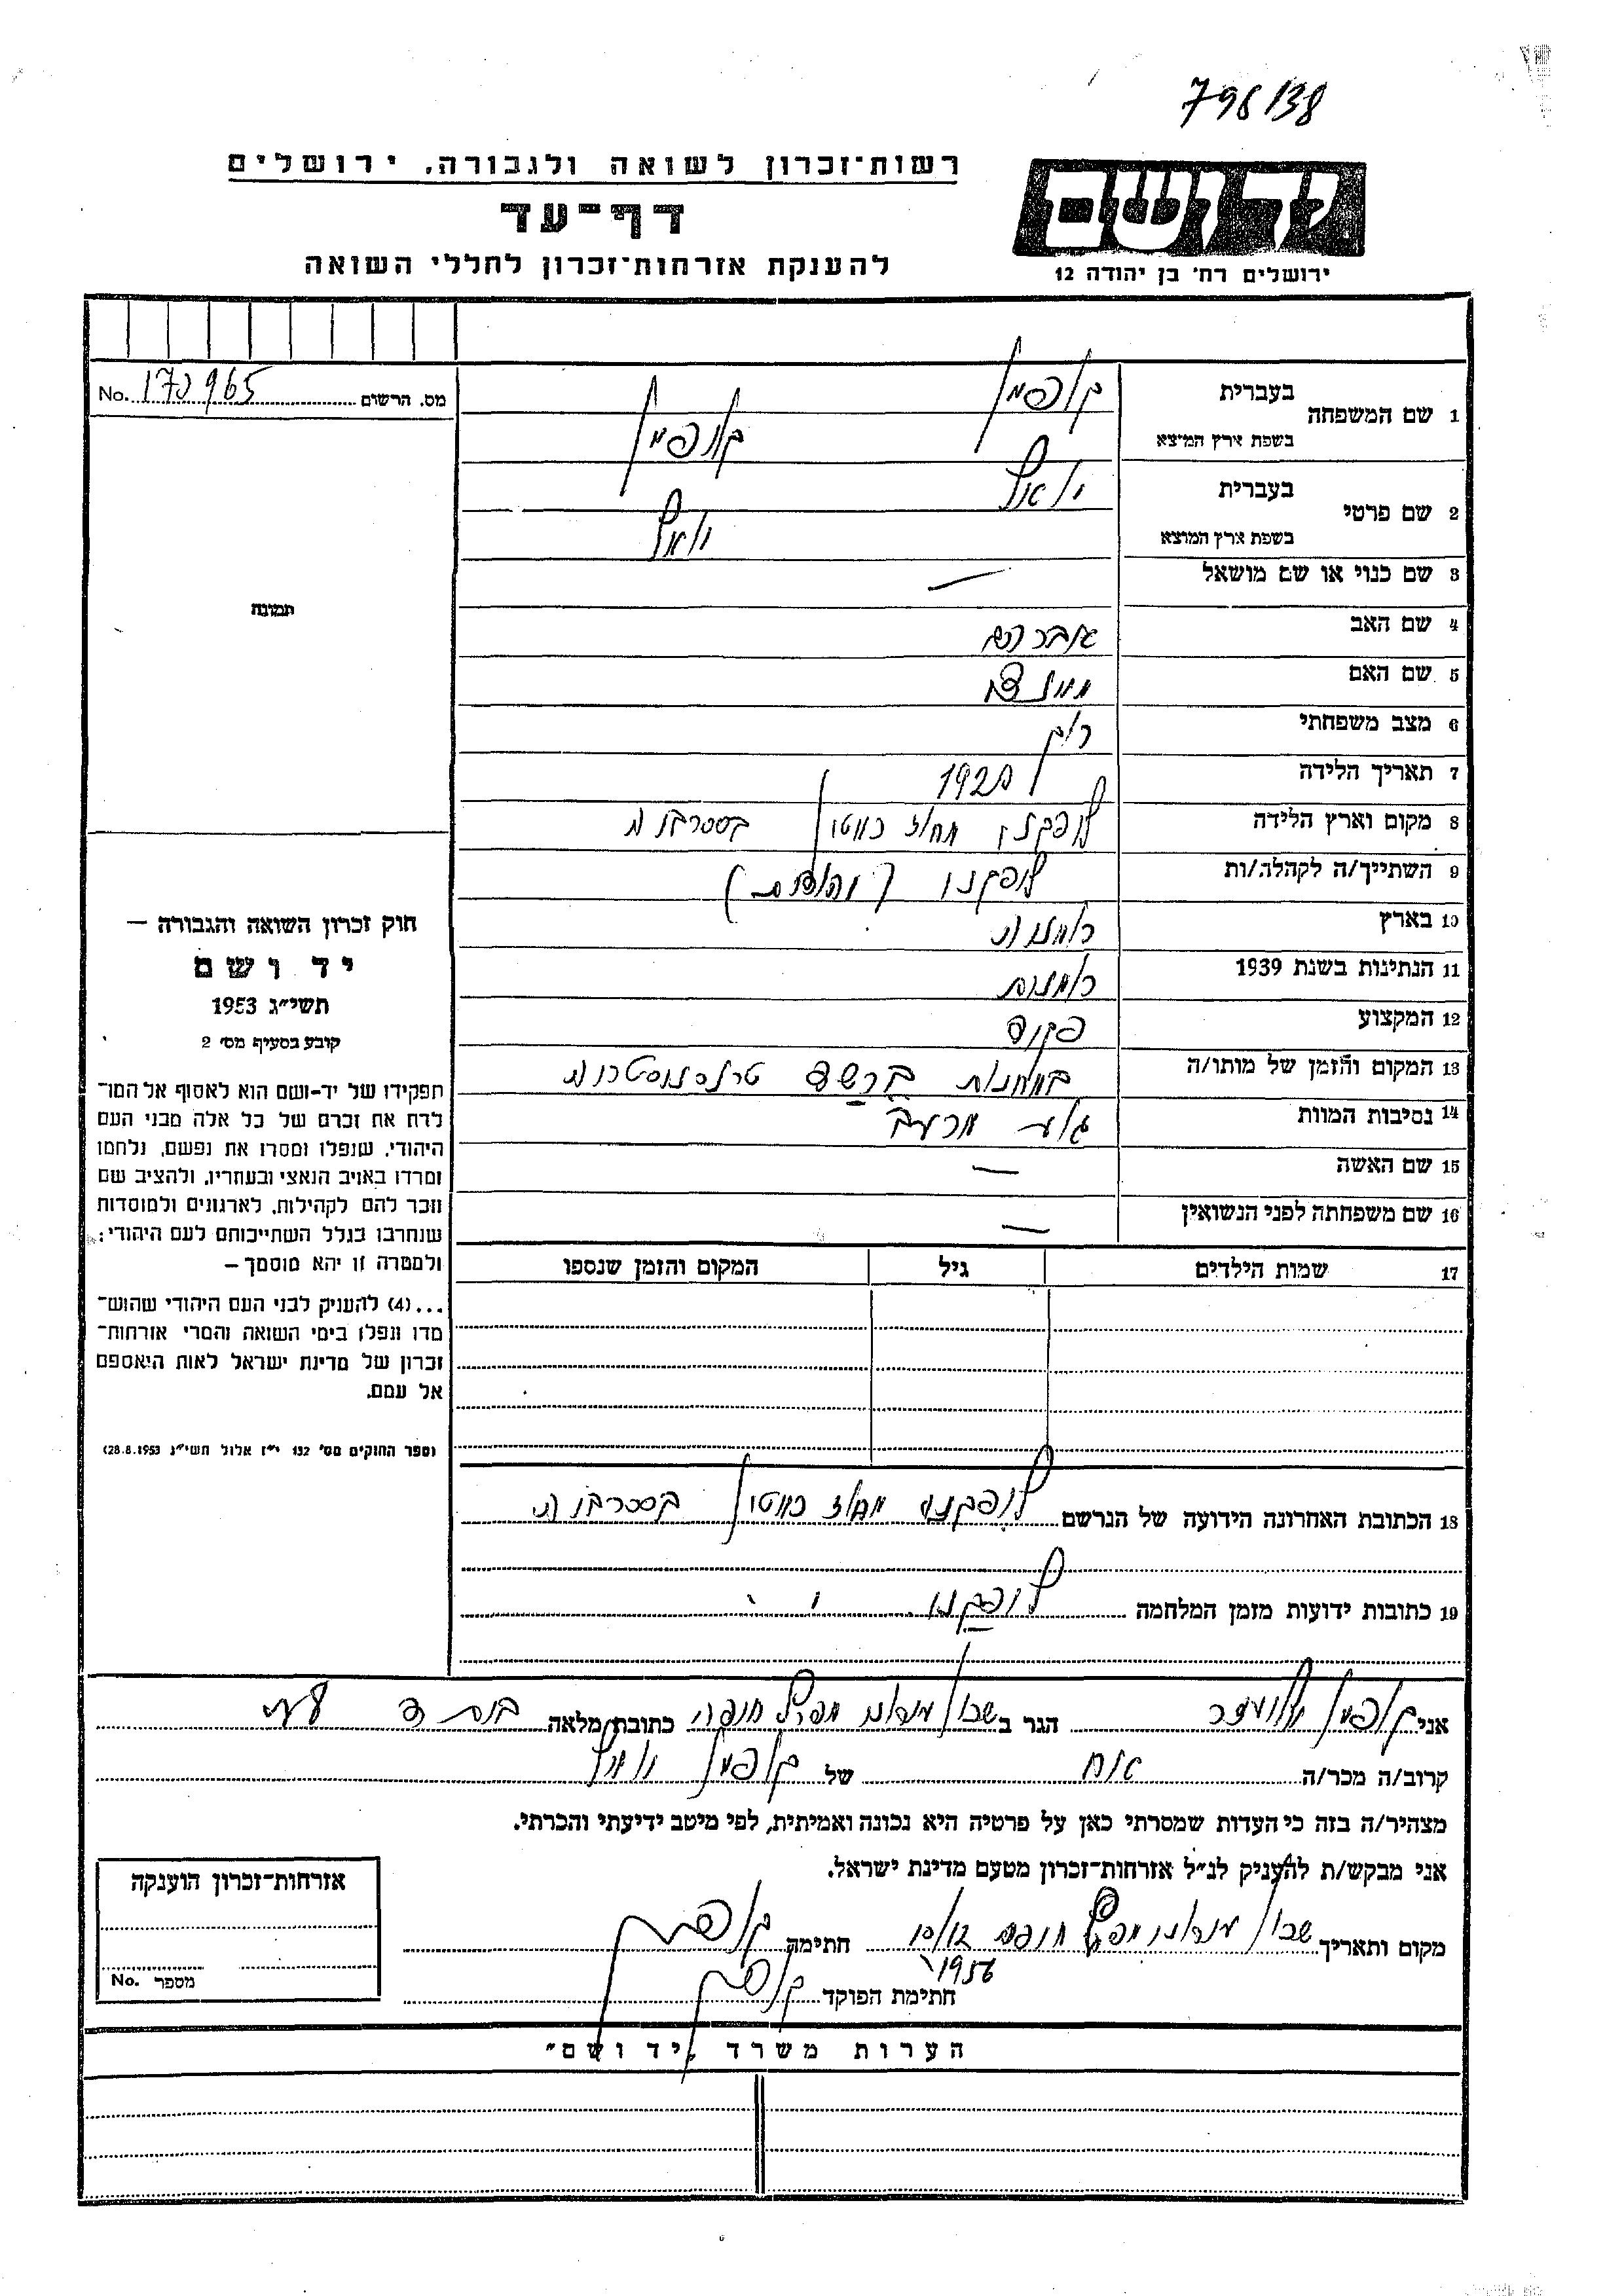 798/38
רשות־זכרון לשואה ולגבורה, ירושלים
דף־עד
להענקת אזרחות־זכרון לחללי השואה
יד ושם
ירושלים רח' בן יהודה 12
מס. הרשום No. 170965
1 שם המשפחה בעברית קופמן
בשפת ארץ המוצא קופמן
2 שם פרטי בעברית
בשפת ארץ המוצא
3 שם כנוי או שם מושאל —
4 שם האב אברהם
5 שם האם
6 מצב משפחתי רוק
7 תאריך הלידה 1920
8 מקום וארץ הלידה ליפקני מחוז חוטין בסרביה
9 השתייך/ה לקהלה/ות ליפקני
10 בארץ רומניה
11 הנתינות בשנת 1939 רומנית
12 המקצוע פקיד
13 המקום והזמן של מותו/ה במחנות ברשד טרנסניסטריה
14 נסיבות המוות גוע מרעב
15 שם האשה —
16 שם משפחתה לפני הנשואין —
17 שמות הילדים גיל המקום והזמן שנספו
18 הכתובת האחרונה הידועה של הנרשם ליפקני מחוז חוטין בסרביה
19 כתובות ידועות מזמן המלחמה ליפקני
תמונה
חוק זכרון השואה והגבורה —
יד ושם
תשי״ג 1953
קובע בסעיף מס׳ 2
תפקידו של יד־ושם הוא לאסוף אל המו־
לדת את זכרם של כל אלה מבני העם
היהודי, שנפלו ומסרו את נפשם, נלחמו
ומרדו באויב הנאצי ובעוזריו, ולהציב שם
וזכר להם לקהילות, לארגונים ולמוסדות
שנחרבו בגלל השתייכותם לעם היהודי;
ולמטרה זו יהא מוסמך —
...(4) להעניק לבני העם היהודי שהוש־
מדו ונפלו בימי השואה והמרי אזרחות־
זכרון של מדינת ישראל לאות היאספם
אל עמם.
(ספר החוקים מס׳ 132 י״ז אלול תשי״ג 28.8.1953)
אני קופמן הגר ב שכון חיפה כתובת מלאה
קרוב/ה מכר/ה אח של קופמן
מצהיר/ה בזה כי העדות שמסרתי כאן על פרטיה היא נכונה ואמיתית, לפי מיטב ידיעתי והכרתי.
אני מבקש/ת להעניק לנ״ל אזרחות־זכרון מטעם מדינת ישראל.
מקום ותאריך שכון חיפה 10/12 1956 חתימה קופמן
חתימת הפוקד קופמן
אזרחות־זכרון הוענקה
מספר No.
הערות משרד „יד ושם״